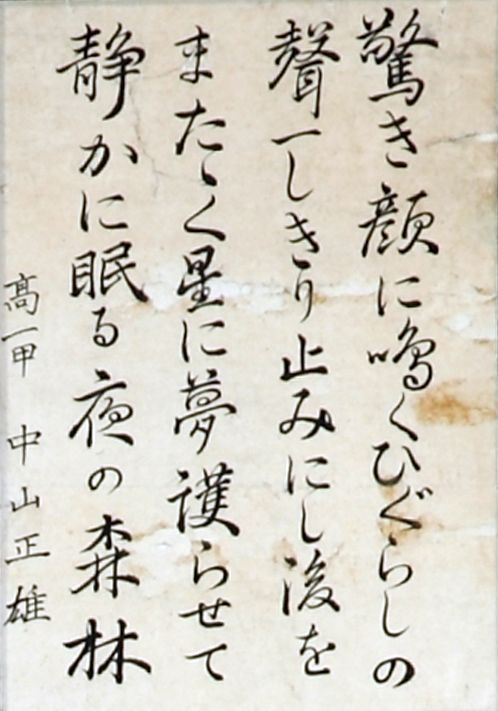 驚き顔に鳴くひぐらしの
聲一しきり止みにし後を
またゝく星に夢護らせて
静かに眠る夜の森林
高一甲 中山正雄